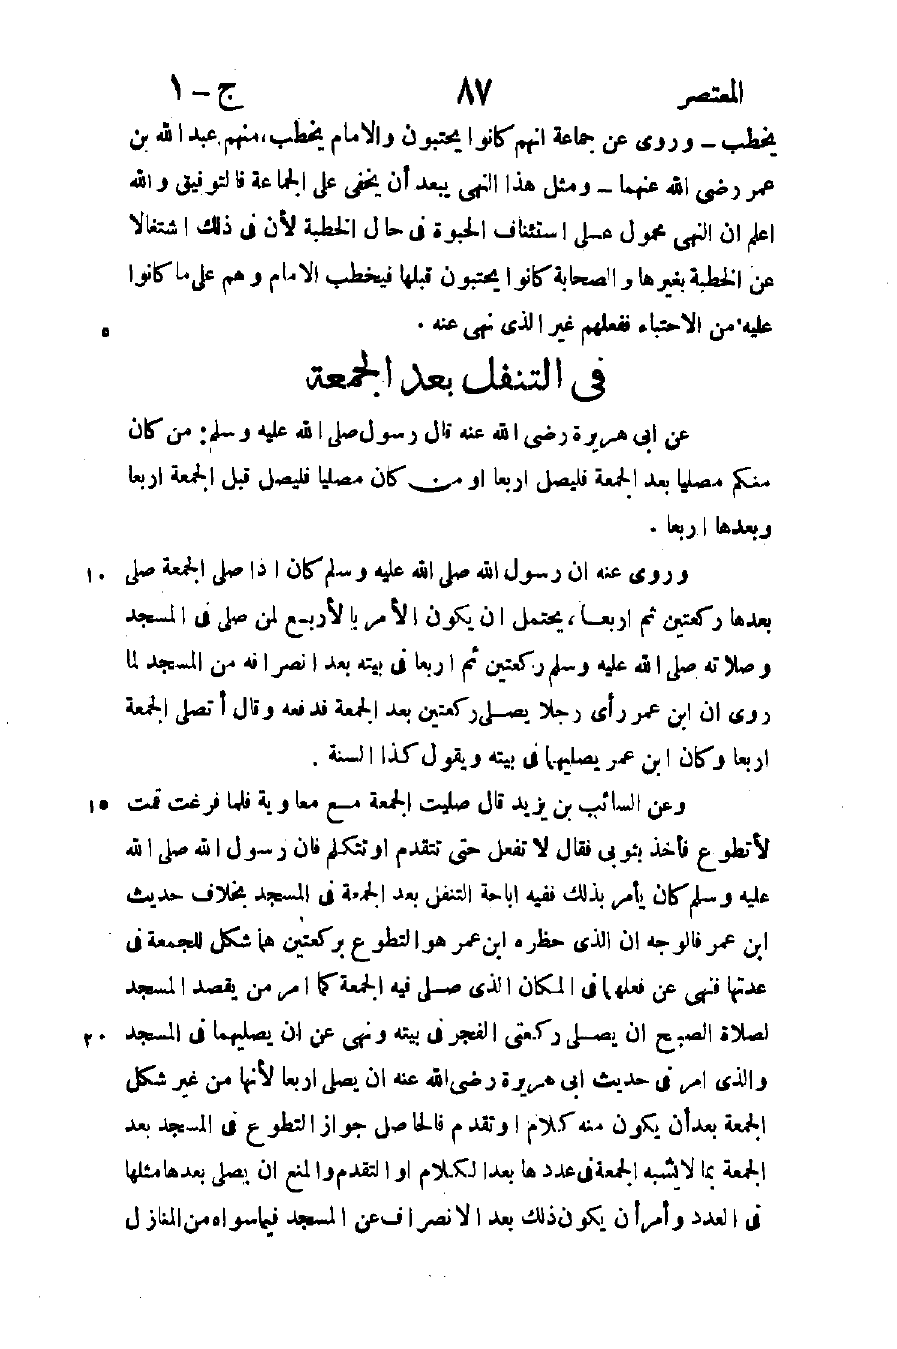 المعتصر ٨٧ ج – ١
يخطب – وروى عن جماعة انهم كانوا يحتبون والامام يخطب، منهم عبد الله بن
عمر رضى الله عنهما – ومثل هذا النهى يبعد أن يخفى على الجماعة فالتوفيق والله
اعلم ان النهى محمول على استئناف الحبوة فى حال الخطبة لأن فى ذلك اشتغالا
عن الخطبة بغيرها والصحابة كانوا يحتبون قبلها فيخطب الامام وهم على ما كانوا
عليه من الاحتباء ففعلهم غير الذى نهى عنه . ٥
فى التنفل بعد الجمعة
عن ابى هريرة رضى الله عنه قال رسول صلى الله عليه وسلم: من كان
منكم مصليا بعد الجمعة فليصل اربعا او من كان مصليا فليصل قبل الجمعة اربعا
وبعدها اربعا .
وروى عنه ان رسول الله صلى الله عليه وسلم كان اذا صلى الجمعة صلى ١٠
بعدها ركعتين ثم اربعا، يحتمل ان يكون الأمر بالأربع لمن صلى فى المسجد
وصلاته صلى الله عليه وسلم ركعتين ثم اربعا فى بيته بعد انصرافه من المسجد لما
روى ان ابن عمر رأى رجلا يصلى ركعتين بعد الجمعة فدفعه وقال أتصلى الجمعة
اربعا وكان ابن عمر يصليها فى بيته ويقول كذا السنة .
وعن السائب بن يزيد قال صليت الجمعة مع معاوية فلما فرغت قمت ١٥
لأتطوع فأخذ بثوبى فقال لا تفعل حتى تتقدم او تتكلم فان رسول الله صلى الله
عليه وسلم كان يأمر بذلك ففيه اباحة التنفل بعد الجمعة فى المسجد بخلاف حديث
ابن عمر فالوجه ان الذى حظره ابن عمر هو التطوع بركعتين هما شكل للجمعة فى
عدتها فنهى عن فعلها فى المكان الذى صلى فيه الجمعة كما امر من يقصد المسجد
لصلاة الصبح ان يصلى ركعتى الفجر فى بيته ونهى عن ان يصليهما فى المسجد ٢٠
والذى امر فى حديث ابى هريرة رضى الله عنه ان يصلى اربعا لأنها من غير شكل
الجمعة بعد أن يكون منه كلام او تقدم فالحاصل جواز التطوع فى المسجد بعد
الجمعة بما لا يشبه الجمعة فى عددها بعد الكلام او التقدم والمنع ان يصلى بعدها مثلها
فى العدد وأمر أن يكون ذلك بعد الانصراف عن المسجد فيما سواه من المنازل